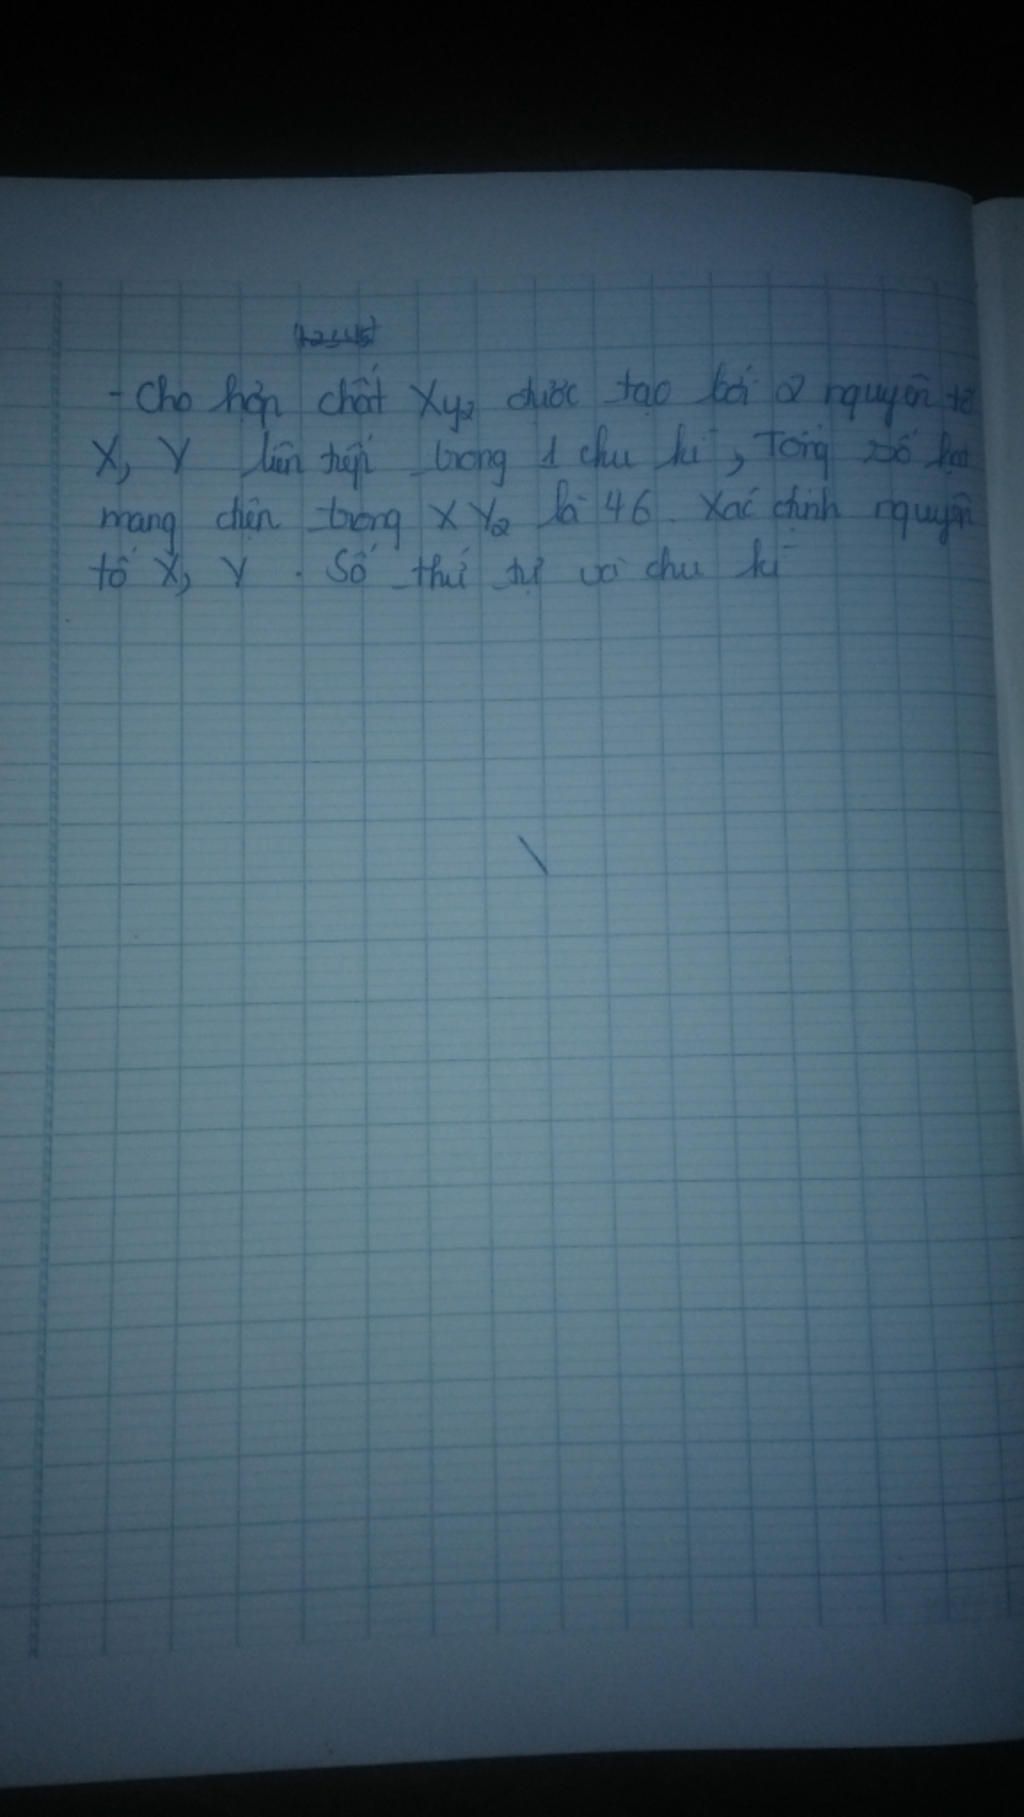 - Cho hợp chất XY₂ được tạo bởi 2 nguyên tố
X, Y liên tiếp trong 1 chu kì, Tổng số hạt
mang điện trong XY₂ là 46. Xác định nguyên
tố X, Y. Số thứ tự và chu kì